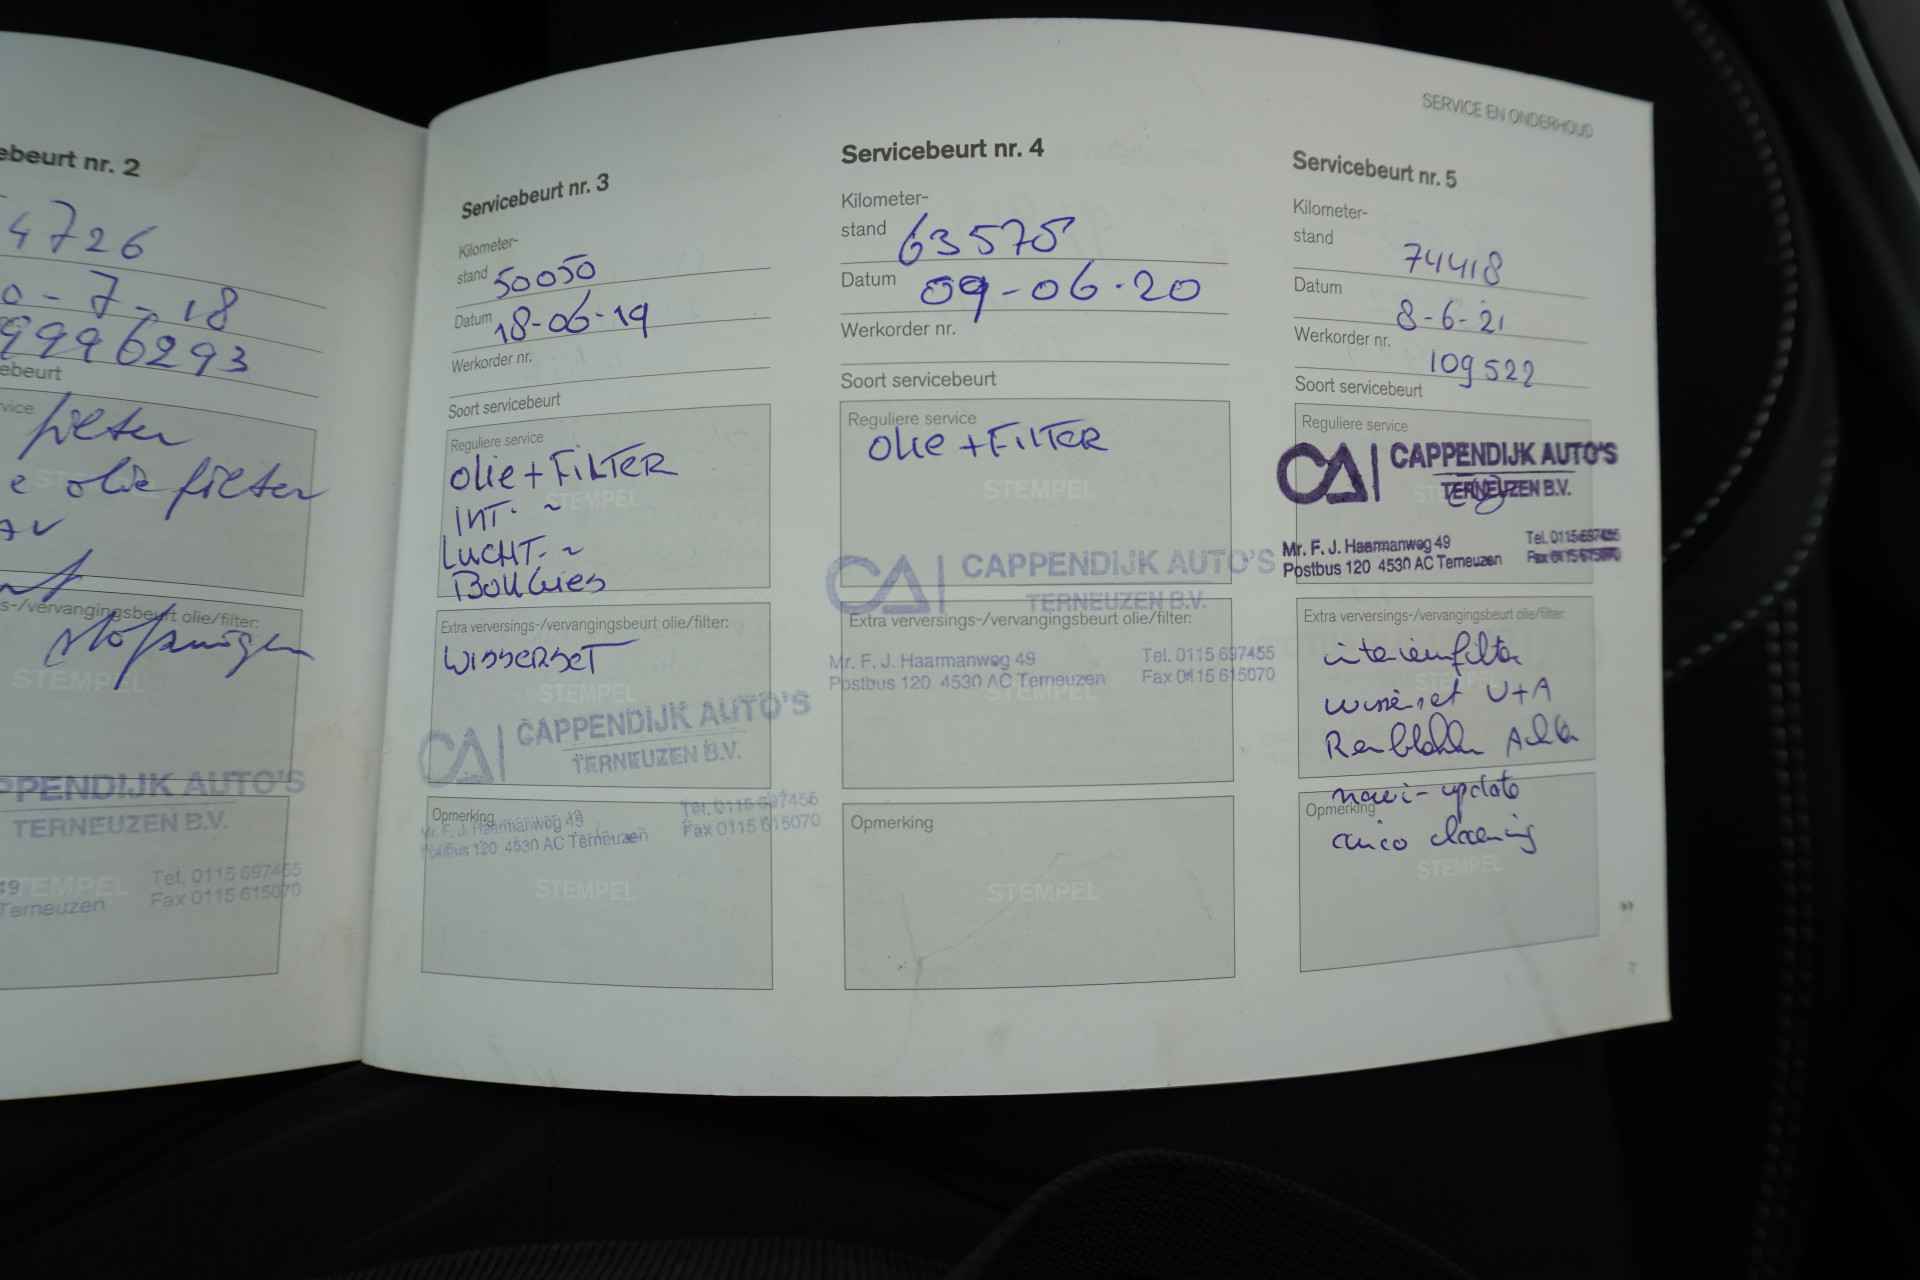 SERVICE EN ONDERHOUD
ebeurt nr. 2
4726
0-7-18
9996293
ebeurt
vice
filter
e olie filter
STEMPEL
s-/vervangingsbeurt olie/filter:
STEMPEL
PPENDIJK AUTO'S
TERNEUZEN B.V.
49
STEMPEL
Tel. 0115 697455
Terneuzen
Fax 0115 615070
Servicebeurt nr. 3
Kilometer-
stand 50050
Datum 18-06-19
Werkorder nr.
Soort servicebeurt
Reguliere service
OLIE + FILTER
STEMPEL
INT. ~
LUCHT. ~
BOUGIES
Extra verversings-/vervangingsbeurt olie/filter:
WISSERSET
STEMPEL
CA CAPPENDIJK AUTO'S
TERNEUZEN B.V.
Opmerking
Mr. F. J. Haarmanweg 49
Tel. 0115 697455
Postbus 120 4530 AC Terneuzen
Fax 0115 615070
STEMPEL
Servicebeurt nr. 4
Kilometer-
stand 63575
Datum 09-06-20
Werkorder nr.
Soort servicebeurt
Reguliere service
OLIE + FILTER
STEMPEL
CA CAPPENDIJK AUTO'S
TERNEUZEN B.V.
Extra verversings-/vervangingsbeurt olie/filter:
Mr. F. J. Haarmanweg 49
Tel. 0115 697455
Postbus 120 4530 AC Terneuzen
Fax 0115 615070
STEMPEL
Opmerking
STEMPEL
Servicebeurt nr. 5
Kilometer-
stand 74418
Datum 8-6-21
Werkorder nr. 109522
Soort servicebeurt
Reguliere service
CA CAPPENDIJK AUTO'S
TERNEUZEN B.V.
Mr. F. J. Haarmanweg 49
Tel. 0115 697455
Postbus 120 4530 AC Terneuzen
Fax 0115 615070
Extra verversings-/vervangingsbeurt olie/filter:
interieurfilter
STEMPEL
wisserset V+A
Remblokken Achter
navi-update
Opmerking
airco cleaning
STEMPEL